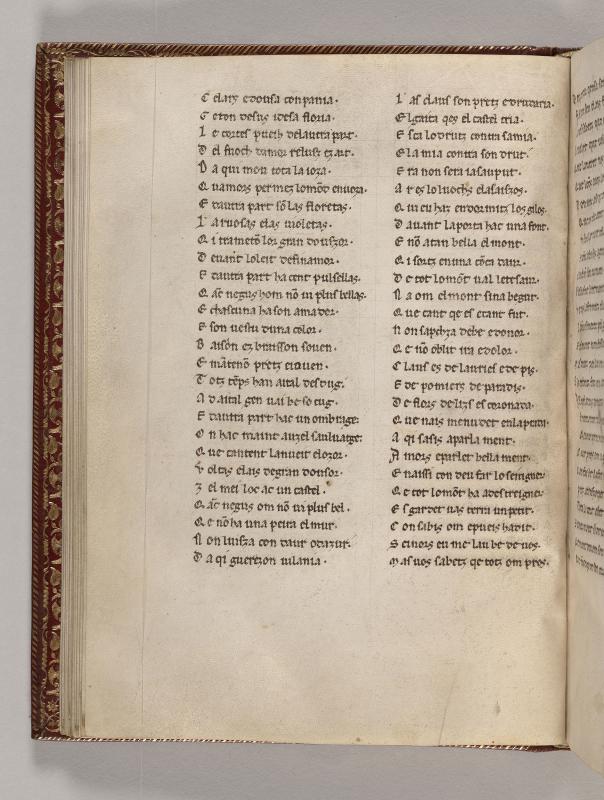 C elary e dousa conpania·
C eton desus idesa floria·
L e cortes pueih delautra part·
D el fuoch damor relusi ez art·
D a qui mou tota la ioia·
Q uamors per mez lomōd enuoia·
E dautra part sō las floretas·
L as rosas e las uioletas·
Q i trametō lor gran douszor·
D euant loleit definamor·
E dautra part ha cent pulsellas·
Q āc negus hom nō ui plus bellas·
E chascuna ha son amador·
E son uestu duna color·
B aison ez braisson souen·
E māntenō pretz e iouen·
T otz tēps han aital desdug·
A daital gen uai be so cug·
E dautra part hac un ombrage·
O n hac maint auzel sauluatge·
Q ue cantent la nueit elozor·
V oltas e lais de gran dousor·
Z el mei loc ac un castel·
Q āc negus om nō ui plus bel·
Q e nō ha una peira el mur·
N on luisza con daur o dazur·
D a qi guerezon uilania·
L as claus son pretz e drudaria·
E lgaita qes el castel cria·
E sca lo drutz contra samia·
E la mia contra son drut·
E ra non sera ia sauput·
A r es lo luochs e la saszos·
Q ui eu haz endormitz los gilos·
D auant la porta hac una font·
E nō a tan bella el mont·
Q i sortz en una cōca daur·
D e tot lo mōt ual le tesaur·
N a om el mont si na begut·
Q ue tant qe es estant fut·
N on sapcha de be e donor·
Q e nō oblit ira e dolor·
C laus es de lauriers e de pis·
E de pomiers de paradis·
D e flors de lizs es coronada·
Q ue nais menudet en la prada·
A qi sasis a parlament·
A mors e parlet bellament·
E naissi con deu far lo seingner·
Q e tot lo mōt ha a destreigner·
E sgardet uas terra un petit·
C on sabis om e pueis ha dit·
S einors eu me lau be de uos·
M as uos sabetz qe totz om pros·